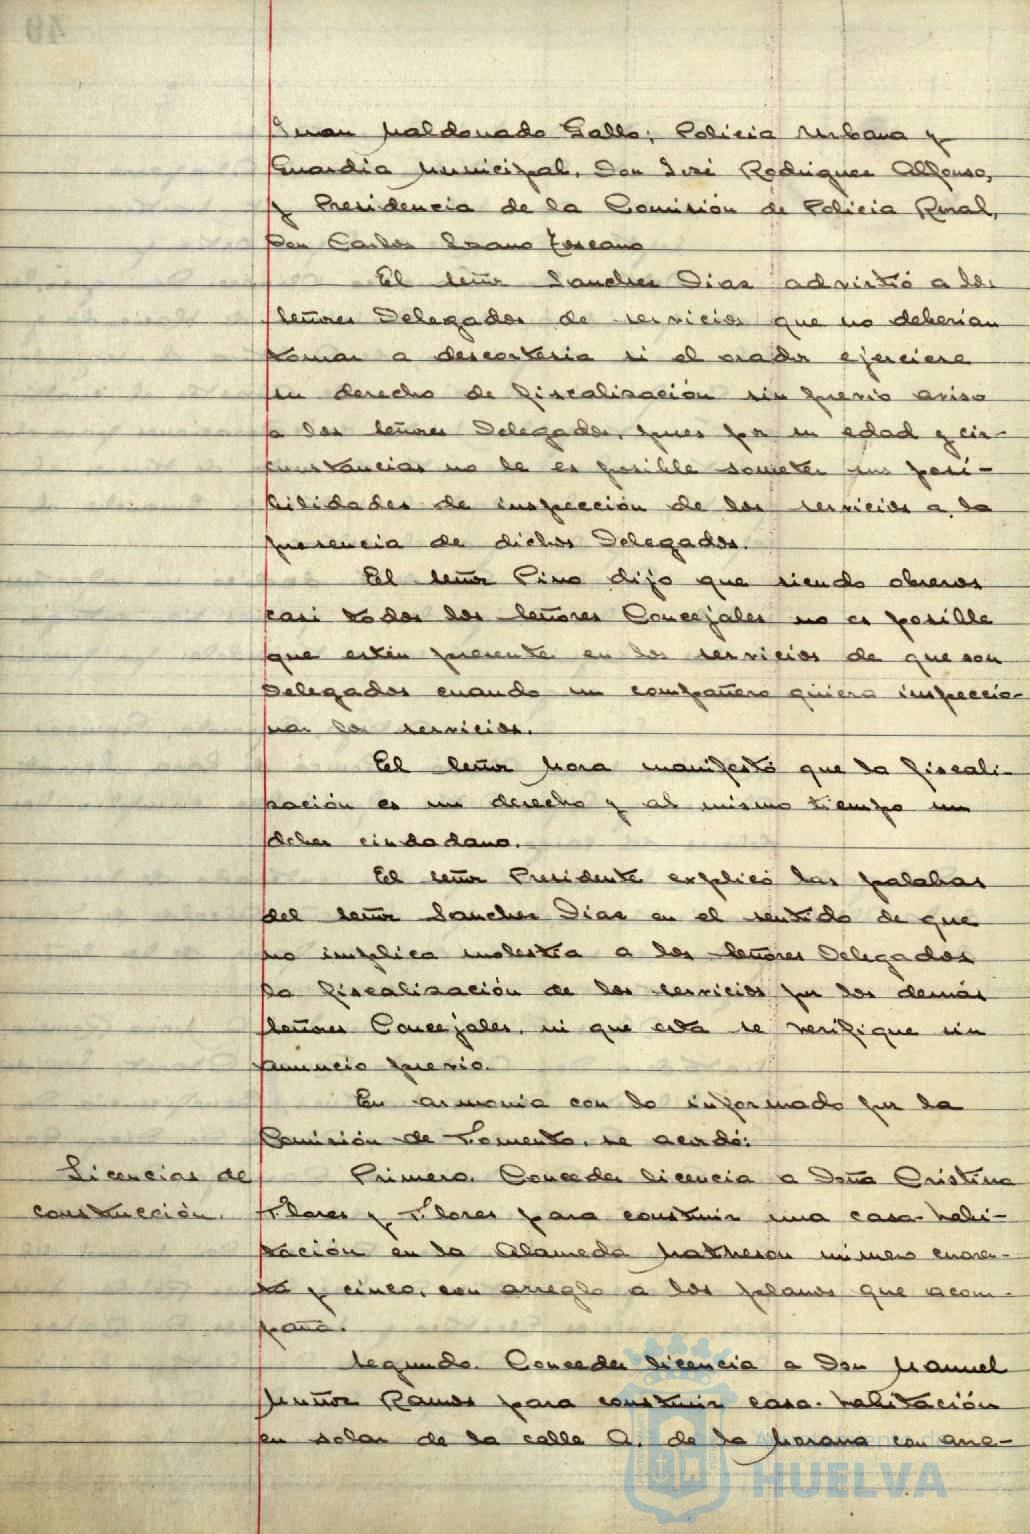 Juan Maldonado Gallo; Policia Urbana y
Guardia Municipal, Don José Rodriguez Alfonso,
y Presidencia de la Comisión de Policia Rural,
Don Carlos Toscano
El señor Sanchez Diaz advirtió a los
señores Delegados de servicios que no deberian
tomar a descortesia si el orador ejerciere
su derecho de fiscalización sin previo aviso
a los señores Delegados, pues por su edad y cir-
cunstancias no le es posible someter sus posi-
bilidades de inspección de los servicios a la
presencia de dichos Delegados.
El señor Pino dijo que siendo obreros
casi todos los señores Concejales no es posible
que estén presente en los servicios de que son
Delegados cuando un compañero quiera inspeccio-
nar los servicios.
El señor Mora manifestó que la fiscali-
zación es un derecho y al mismo tiempo un
deber ciudadano.
El señor Presidente explicó las palabras
del señor Sanchez Diaz en el sentido de que
no implica molestia a los señores Delegados
la fiscalización de los servicios por los demás
señores Concejales, ni que esta se verifique sin
anuncio previo.
En armonia con lo informado por la
Comisión de Fomento, se acordó:
Licencias de
construcción.
Primero. Conceder licencia a Doña Cristina
Flores y Flores para construir una casa-habi-
tación en la Alameda Matheson número cuaren-
ta y cinco, con arreglo a los planos que acom-
paña.
Segundo. Conceder licencia a Don Manuel
Muñoz Ramos para construir casa-habitación
en solar de la calle A. de la Morana con arre-
HUELVA